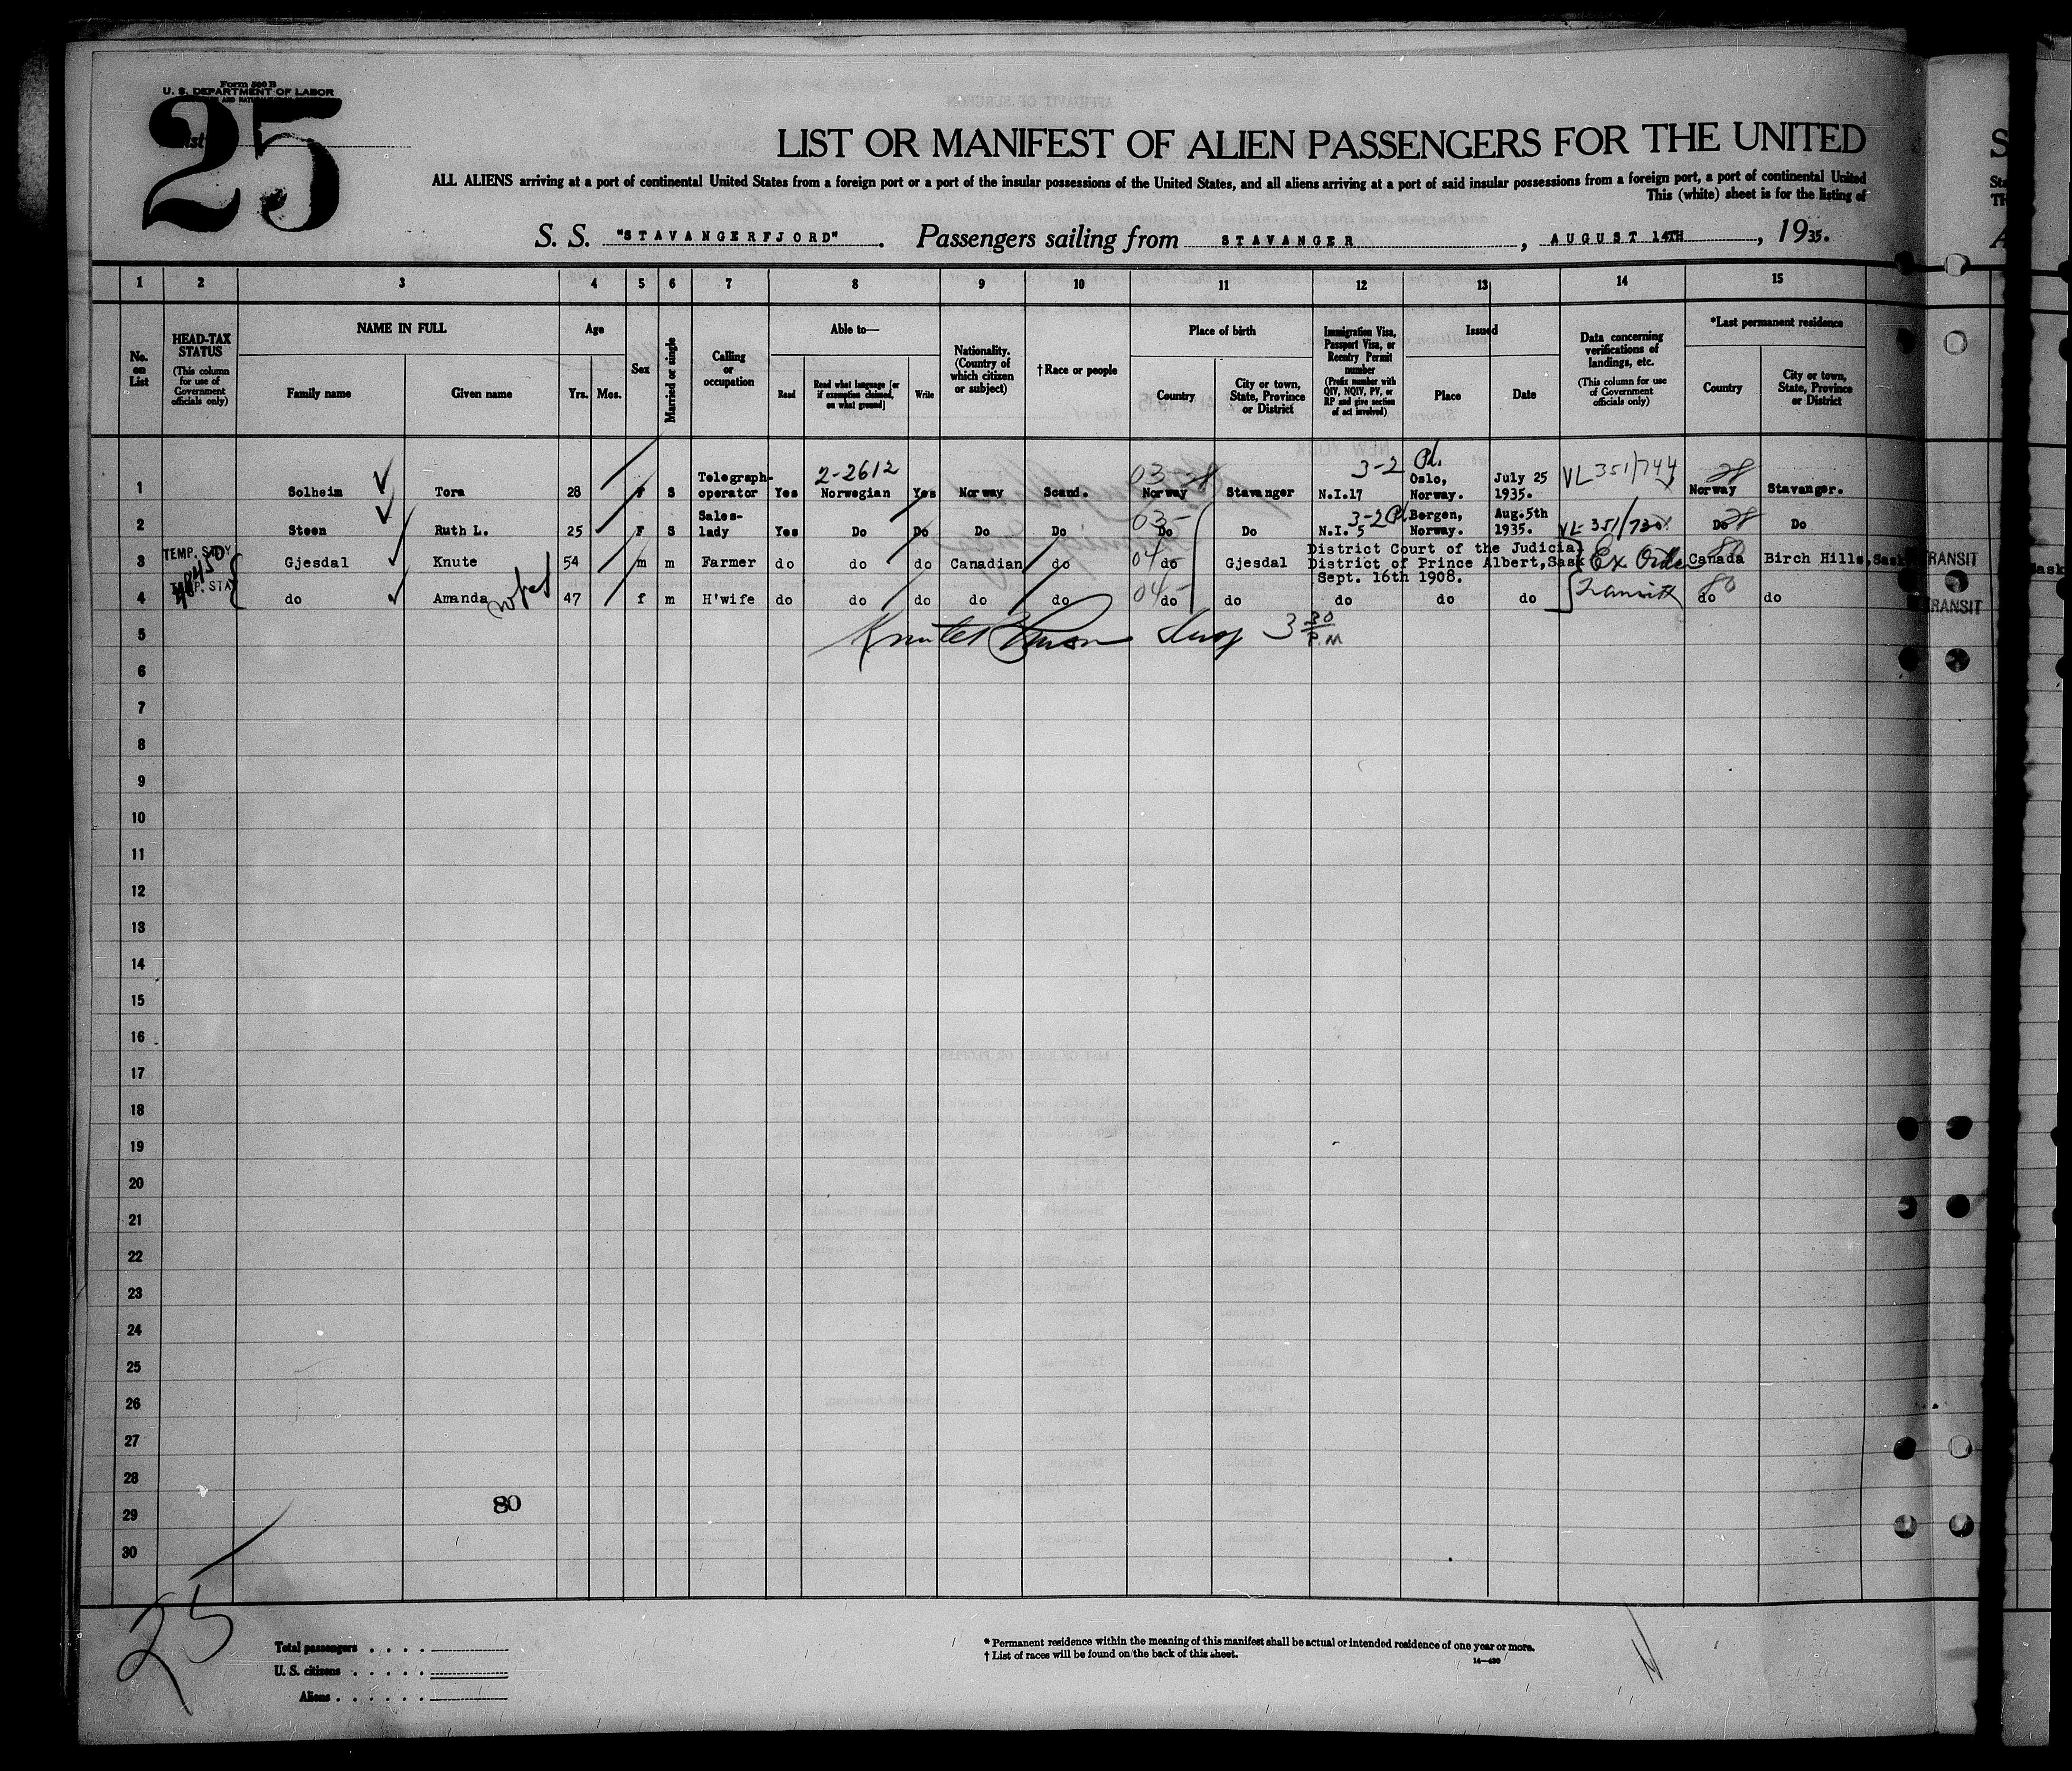 Form 500 B
U. S. DEPARTMENT OF LABOR
List
25
LIST OR MANIFEST OF ALIEN PASSENGERS FOR THE UNITED
ALL ALIENS arriving at a port of continental United States from a foreign port or a port of the insular possessions of the United States, and all aliens arriving at a port of said insular possessions from a foreign port, a port of continental United
This (white) sheet is for the listing of
S. S. "STAVANGERFJORD". Passengers sailing from STAVANGER, AUGUST 14TH, 1935.
1 2 3 4 5 6 7 8 9 10 11 12 13 14 15
No. on List
HEAD-TAX STATUS
(This column for use of Government officials only)
NAME IN FULL
Family name Given name
Age
Yrs. Mos.
Sex
Married or single
Calling or occupation
Able to—
Read Read what language [or if exemption claimed, on what ground] Write
Nationality. (Country of which citizen or subject)
†Race or people
Place of birth
Country City or town, State, Province or District
Immigration Visa, Passport Visa, or Reentry Permit number
(Prefix number with QIV, NQIV, PV, or RP and give section of act involved)
Issued
Place Date
Data concerning verifications of landings, etc.
(This column for use of Government officials only)
*Last permanent residence
Country City or town, State, Province or District
2-2612 03 28 3-2 VL 351/744 28
1 Solheim Tora 28 F S Telegraph-operator Yes Norwegian Yes Norway Scand. Norway Stavanger N.I.17 Oslo, Norway. July 25 1935. Norway Stavanger.
03 3-2 VL 351/ 28
2 Steen Ruth L. 25 F S Sales-lady Yes Do Do Do Do Do Do N.I. 5 Bergen, Norway. Aug.5th 1935. Do Do
TEMP. STAY
3 Gjesdal Knute 54 m m Farmer do do do Canadian do 04 do Gjesdal District Court of the Judicial District of Prince Albert, Sask Sept. 16th 1908. Ex. Canada 80 Birch Hills, Sask TRANSIT
TEMP. STAY
4 do Amanda 47 f m H'wife do do do do do 04 do do do do do Transit do 80 do TRANSIT
5 3 30 P.M
6
7
8
9
10
11
12
13
14
15
16
17
18
19
20
21
22
23
24
25
26
27
28
29 80
30
25
Total passengers . . . .
U. S. citizens . . . . .
Aliens . . . . . .
* Permanent residence within the meaning of this manifest shall be actual or intended residence of one year or more.
† List of races will be found on the back of this sheet.
14—430